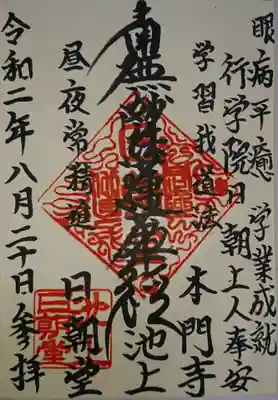 眼病平癒 学業成就
行学院日朝上人奉安
学習我道法 本門寺
南無妙法蓮華経 池上
昼夜常精進 日朝堂
令和二年八月二十日参拝